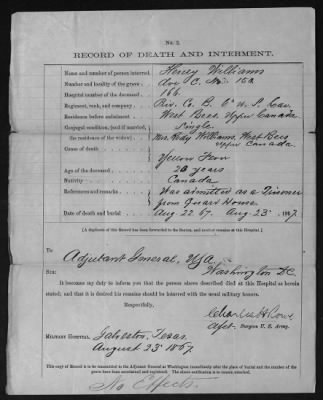 No. 2.
RECORD OF DEATH AND INTERMENT.
Name and number of person interred, Henry Williams
Number and locality of the grave No. 152
Hospital number of the deceased 166
Regiment, rank, and company Priv. Co. B. 6" U.S. Cav.
Residence before enlistment West Upper Canada
Conjugal condition, (and if married, Single
the residence of the widow) Mrs. Williams, West
Upper Canada
Cause of death
Yellow Fever
Age of the deceased 20 years
Nativity Canada
References and remarks Was admitted as a Prisoner
from Guard House.
Date of death and burial Aug 22 67. Aug 23 1867.
[A duplicate of this Record has been forwarded to the Sexton, and receipt of remains at this Hospital.]
To
Adjutant General, U.S.A.
Washington D.C.
SIR:
It becomes my duty to inform you that the person above described died at this Hospital as herein
stated; and that it is desired his remains should be interred with the usual military honors.
Respectfully,
Charles H. Rowe
Surgeon U. S. Army.
MILITARY HOSPITAL, Galveston, Texas.
August 23 1867.
This copy of Record is to be transmitted to the Adjutant General at Washington immediately after the place of burial and the number of the
grave have been ascertained and registered.
No Effects.